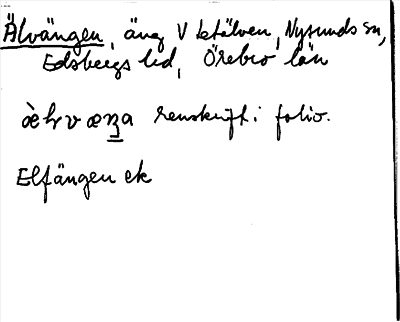 Älvängen, äng V Letälven, Nysunds sn,
Edsbergs hd, Örebro län
renskrift i folio.
Elfängen ek